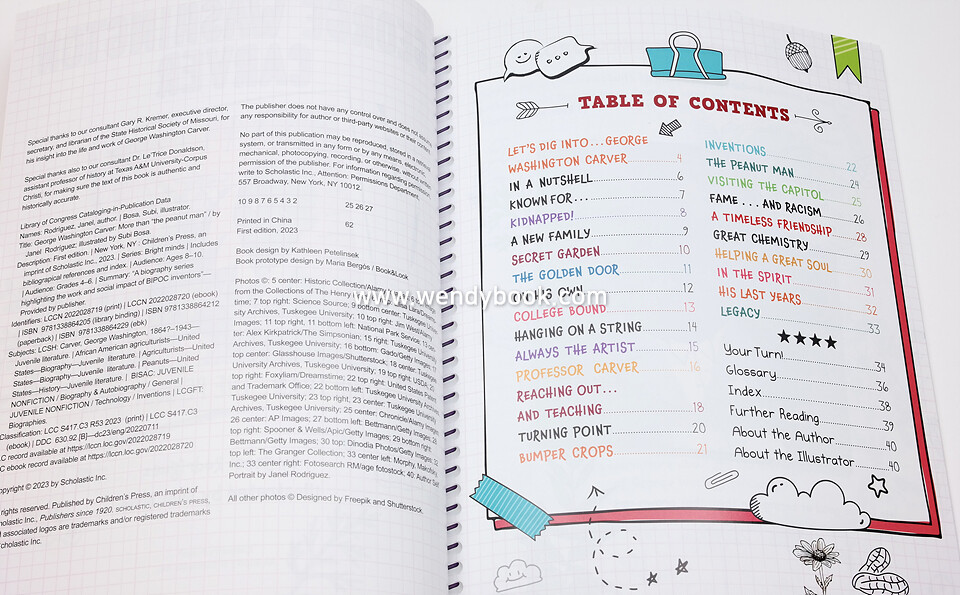 Special thanks to our consultant Gary R. Kremer, executive director,
secretary, and librarian of the State Historical Society of Missouri, for
his insight into the life and work of George Washington Carver.
Special thanks also to our consultant Dr. Le'Trice Donaldson,
assistant professor of history at Texas A&M University-Corpus
Christi, for making sure the text of this book is authentic and
historically accurate.
Library of Congress Cataloging-in-Publication Data
Names: Rodríguez, Janel, author. | Bosa, Subi, illustrator.
Title: George Washington Carver: More than "the peanut man" / by
Janel Rodríguez; illustrated by Subi Bosa.
Description: First edition. | New York, NY : Children's Press, an
imprint of Scholastic Inc., 2023. | Series: Bright minds | Includes
bibliographical references and index. | Audience: Ages 8–10.
| Audience: Grades 4–6. | Summary: "A biography series
highlighting the work and social impact of BIPOC inventors"—
Provided by publisher.
Identifiers: LCCN 2022028719 (print) | LCCN 2022028720 (ebook)
| ISBN 9781338864205 (library binding) | ISBN 9781338864212
(paperback) | ISBN 9781338864229 (ebk)
Subjects: LCSH: Carver, George Washington, 1864?–1943—
Juvenile literature. | African American agriculturists—United
States—Biography—Juvenile literature. | Agriculturists—United
States—Biography—Juvenile literature. | Peanuts—United
States—History—Juvenile literature. | BISAC: JUVENILE
NONFICTION / Biography & Autobiography / General |
JUVENILE NONFICTION / Technology / Inventions | LCGFT:
Biographies.
Classification: LCC S417.C3 R53 2023 (print) | LCC S417.C3
(ebook) | DDC 630.92 [B]—dc23/eng/20220711
LC record available at https://lccn.loc.gov/2022028719
LC ebook record available at https://lccn.loc.gov/2022028720
Copyright © 2023 by Scholastic Inc.
rights reserved. Published by Children's Press, an imprint of
Scholastic Inc., Publishers since 1920. SCHOLASTIC, CHILDREN'S PRESS,
associated logos are trademarks and/or registered trademarks
Scholastic Inc.
The publisher does not have any control over and does not assume
any responsibility for author or third-party websites or their content.
No part of this publication may be reproduced, stored in a retrieval
system, or transmitted in any form or by any means, electronic,
mechanical, photocopying, recording, or otherwise, without written
permission of the publisher. For information regarding permission,
write to Scholastic Inc., Attention: Permissions Department,
557 Broadway, New York, NY 10012.
10 9 8 7 6 5 4 3 2 25 26 27
Printed in China 62
First edition, 2023
Book design by Kathleen Petelinsek
Book prototype design by Maria Bergós / Book&Look
Photos ©: 5 center: Historic Collection/Alamy
from the Collections of The Henry
time; 7 top right: Science Source; 9 bottom center: Tuskegee
sity Archives, Tuskegee University; 10 top right: Jim West/Alamy
Images; 11 top right, 11 bottom left: National Park Service; 13 cen-
ter: Alex Kirkpatrick/The Simpsonian; 15 right: Tuskegee University
Archives, Tuskegee University; 16 bottom: Gado/Getty Images; 17
top center: Glasshouse Images/Shutterstock; 18 center: Tuskegee
University Archives, Tuskegee University; 19 top right: USDA; 20
top right: Foxyliam/Dreamstime; 22 top right: United States Patent
and Trademark Office; 22 bottom left: Tuskegee University Archives,
Tuskegee University; 23 top right, 23 center: Tuskegee University
Archives, Tuskegee University; 25 center: Chronicle/Alamy Images;
26 center: AP Images; 27 bottom left: Bettmann/Getty Images; 28
top right: Spooner & Wells/Apic/Getty Images; 29 bottom right:
Bettmann/Getty Images; 30 top: Dinodia Photos/Getty Images; 32
top left: The Granger Collection; 33 center left: Morphy, Makofsky,
Inc.; 33 center right: Fotosearch RM/age fotostock; 40: Author Self
Portrait by Janel Rodríguez.
All other photos © Designed by Freepik and Shutterstock.
TABLE OF CONTENTS
LET'S DIG INTO...GEORGE
WASHINGTON CARVER 4
IN A NUTSHELL 6
KNOWN FOR... 7
KIDNAPPED! 8
A NEW FAMILY 9
SECRET GARDEN 10
THE GOLDEN DOOR 11
ON HIS OWN 12
COLLEGE BOUND 13
HANGING ON A STRING 14
ALWAYS THE ARTIST 15
PROFESSOR CARVER 16
REACHING OUT...
AND TEACHING 18
TURNING POINT 20
BUMPER CROPS 21
INVENTIONS 22
THE PEANUT MAN 24
VISITING THE CAPITOL 25
FAME...AND RACISM 26
A TIMELESS FRIENDSHIP 28
GREAT CHEMISTRY 29
HELPING A GREAT SOUL 30
IN THE SPIRIT 31
HIS LAST YEARS 32
LEGACY 33
Your Turn! 34
Glossary 36
Index 38
Further Reading 39
About the Author 40
About the Illustrator 40
www.wendybook.com